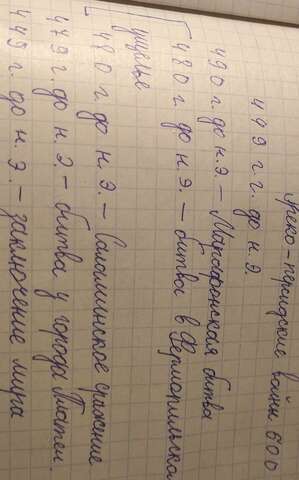 Греко-персидские войны 500
499 г.г. до н.э.
490 г. до н.э. – Марафонская битва
480 г. до н.э. – битва в Фермопильском
ущелье
480 г. до н.э. – Саламинское сражение
479 г. до н.э. – битва у города Платеи.
449 г. до н.э. – заключение мира